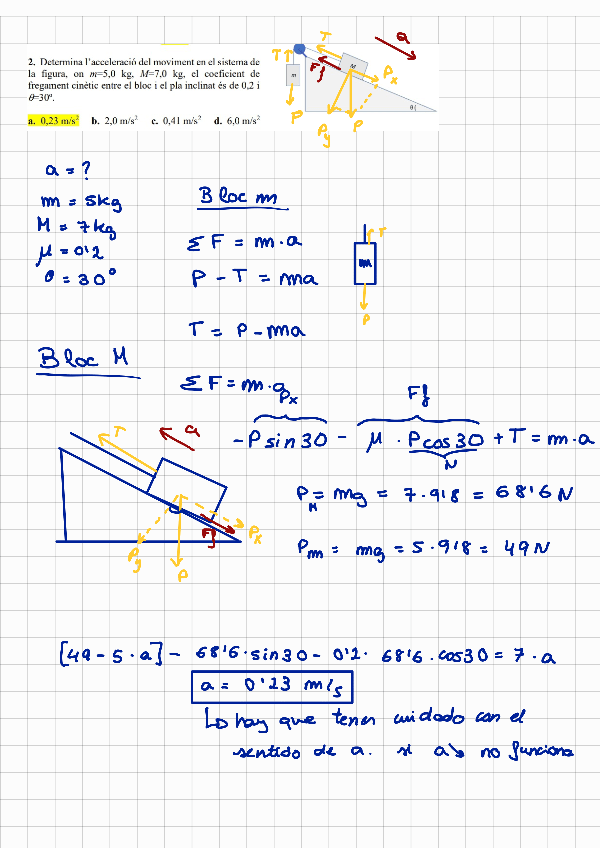 2. Determina l'acceleració del moviment en el sistema de
la figura, on m=5,0 kg, M=7,0 kg, el coeficient de
fregament cinètic entre el bloc i el pla inclinat és de 0,2 i
θ=30º.
a. 0,23 m/s² b. 2,0 m/s² c. 0,41 m/s² d. 6,0 m/s²
T T a
m M Ff Px
P Py P θ
a = ?
m = 5kg
M = 7kg
μ = 0'2
θ = 30°
Bloc m
Σ F = m·a
P - T = ma
T = P - ma
T
m
P
Bloc M
Σ F = m·a
Px Ff
-P sin30 - μ · P cos30 + T = m·a
N
T a
Px
Ff
Py
P
P_M = mg = 7·9'8 = 68'6 N
P_m = mg = 5·9'8 = 49 N
[49 - 5·a] - 68'6·sin30 - 0'2· 68'6·cos30 = 7·a
a = 0'23 m/s
↳ hay que tener cuidado con el
sentido de a. si a↘ no funciona